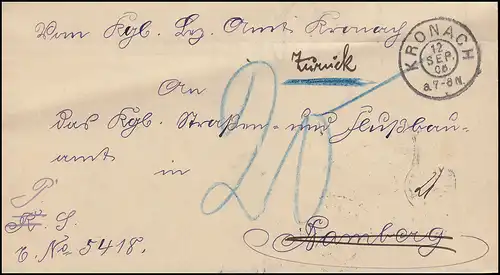 Vom Kgl. Bez. Amt Kronach
KRONACH
12
SEP.
06.
8. 7-8 N.
Zurück
An
das Kgl. Straßen- und Flußbau-
amt in
20
P.
R. S.
E. No 5418.
Bamberg